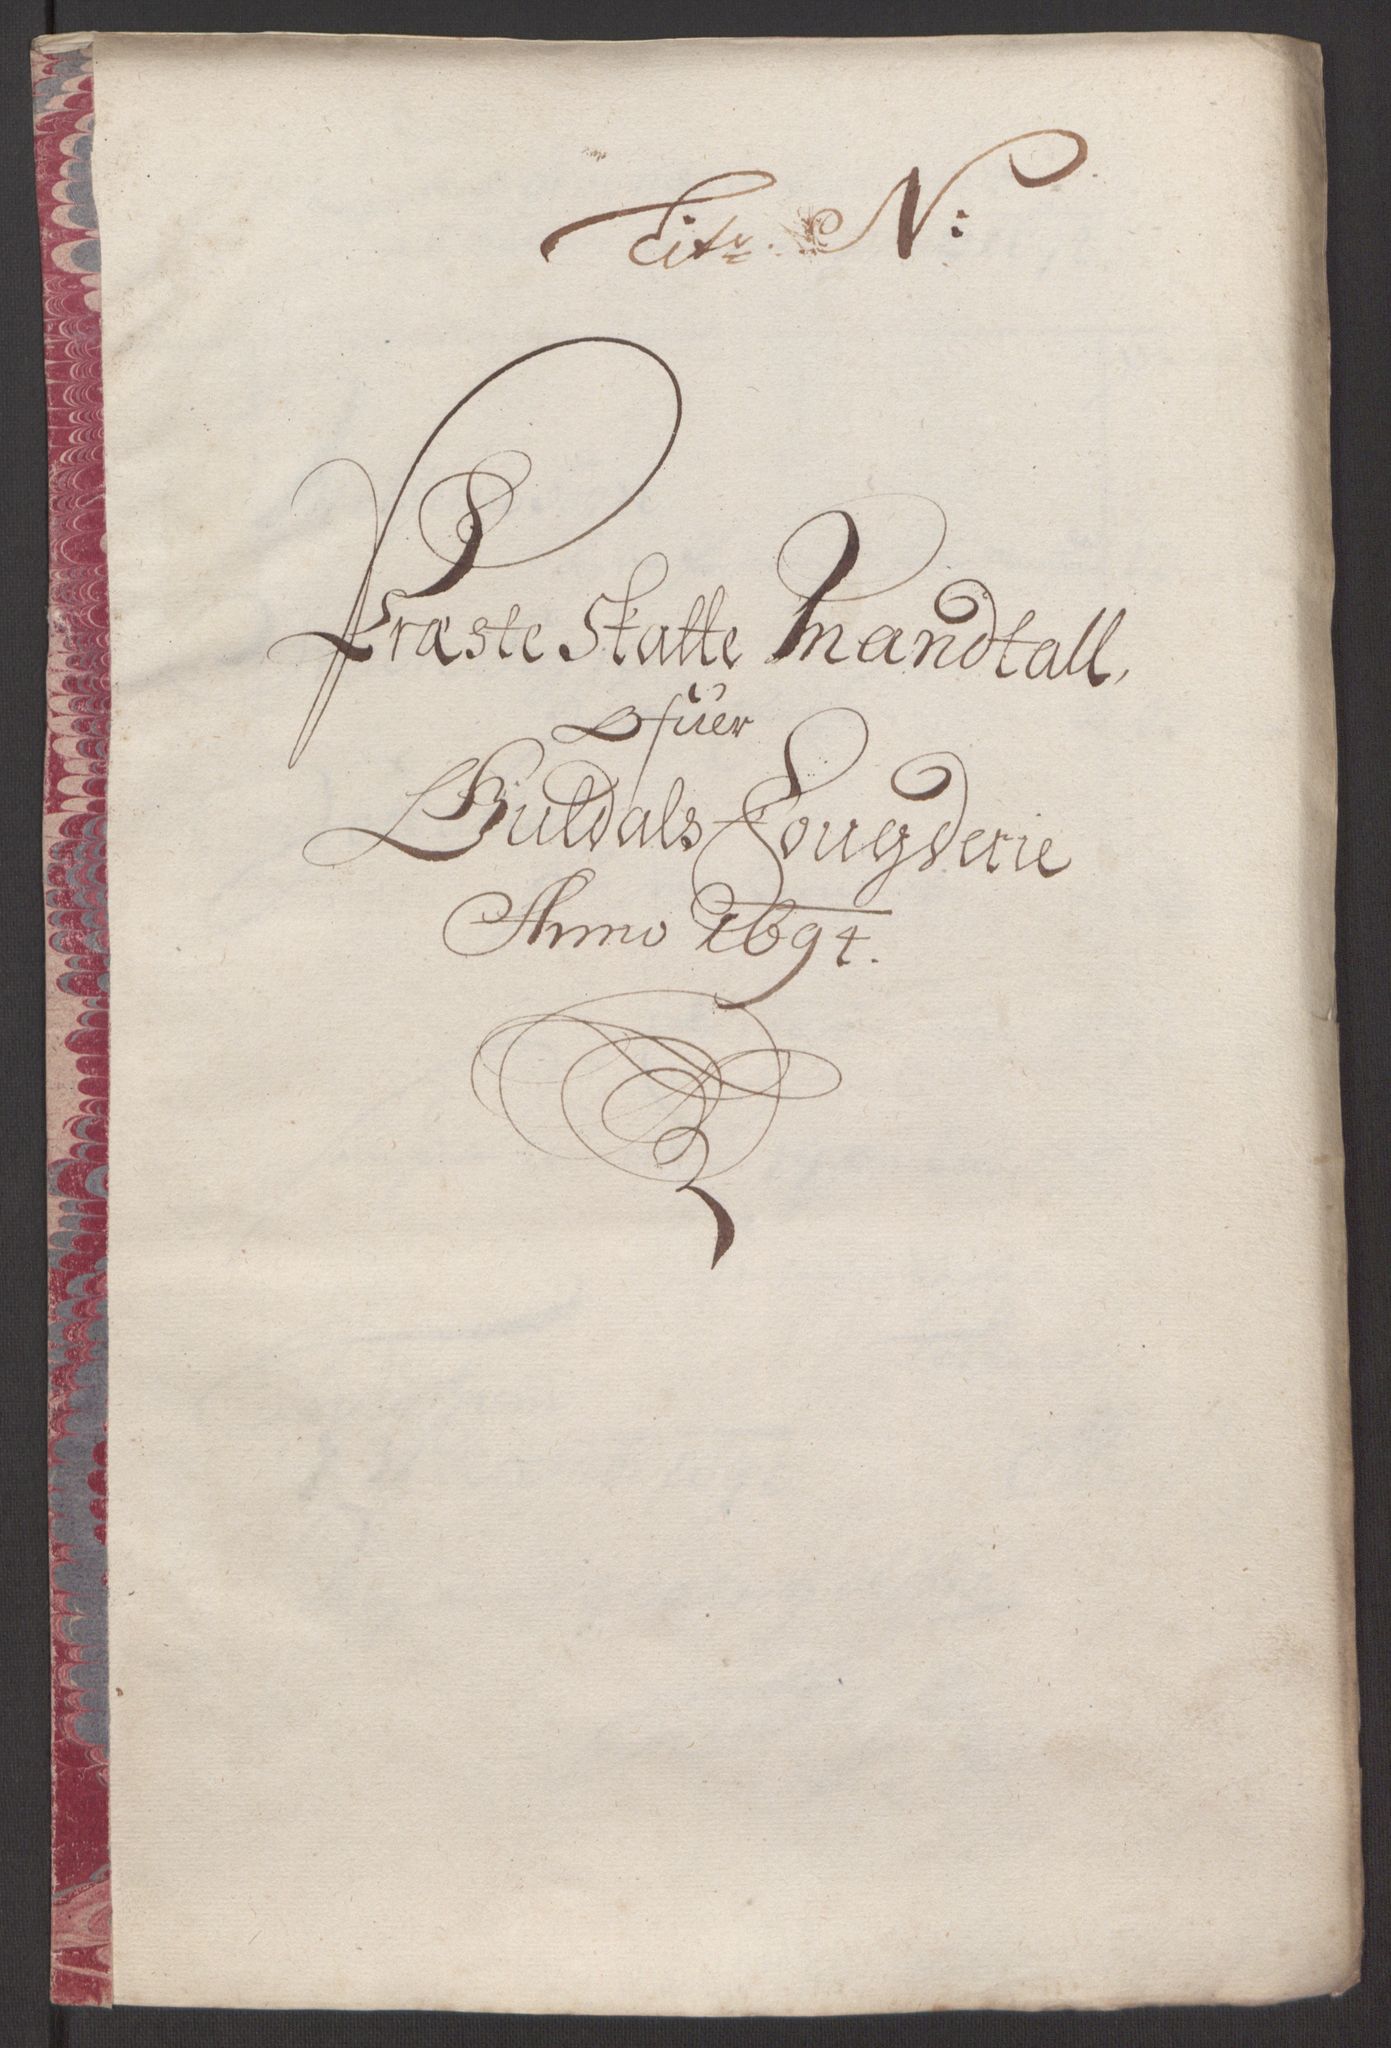 Litr. N:
Præste Skatte Mandtall,
Ofuer
Guldals Fougderie
Anno 1694.